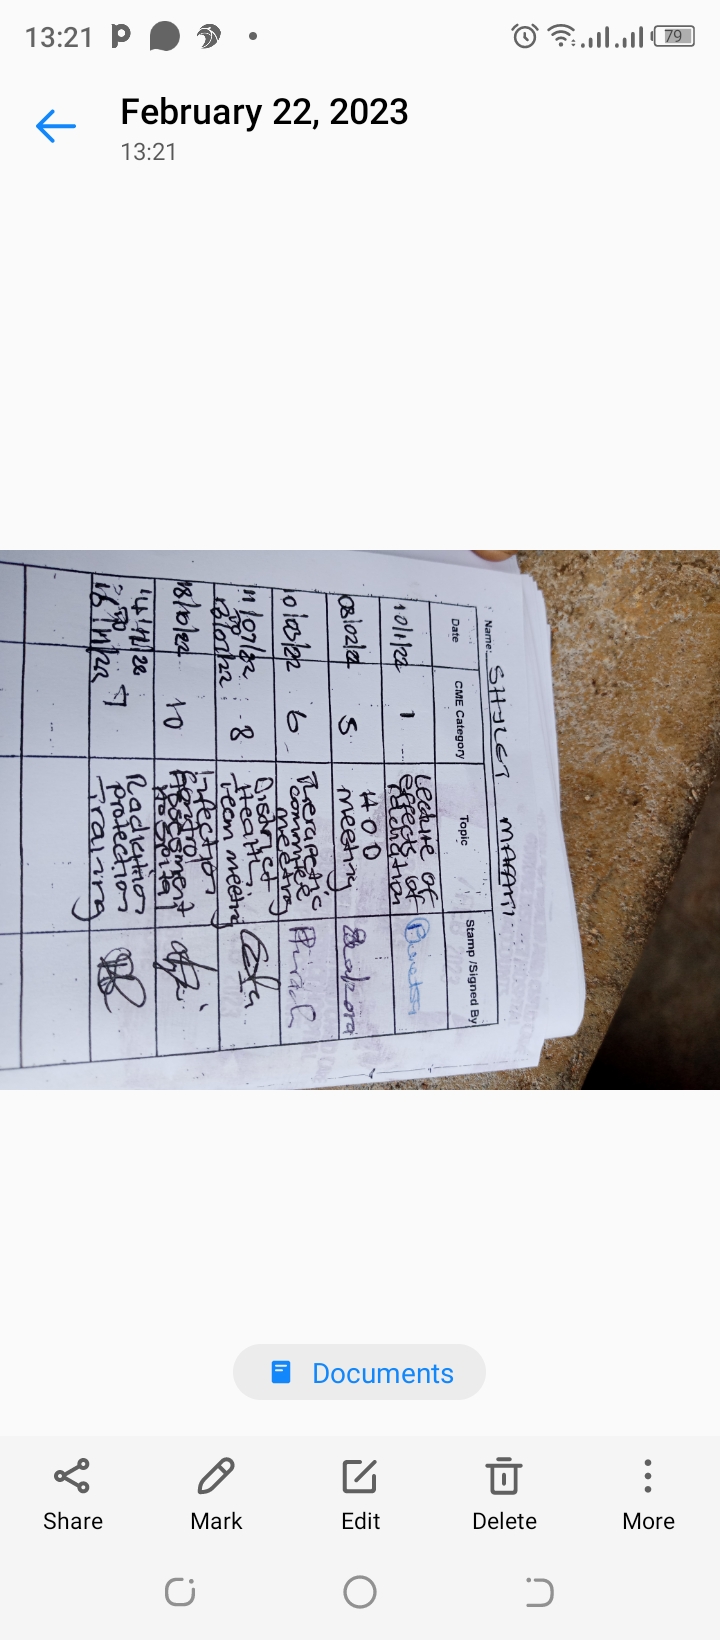 13:21
79
February 22, 2023
13:21
Name: SHYLET
Date CME Category Topic Stamp /Signed By
10/1/22 1 Lecture of
effects of
radiation
08/02/22 5 HOD
meeting
10/03/22 6 Therapetic
committee
meeting
11/07/22 8 District
Health
Team meeting
18/10/22 10 Infection
Control
Assessment
14/11/22 7 Radiation
protection
Training
Documents
Share Mark Edit Delete More